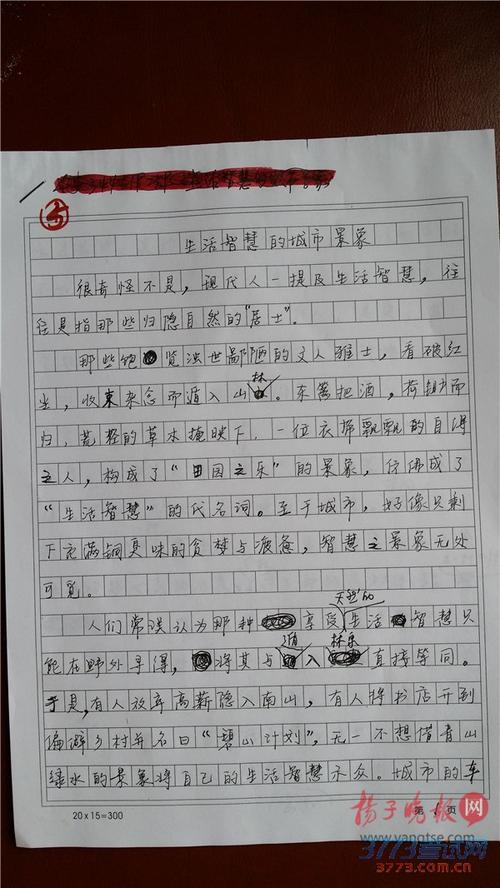 生活智慧的城市景象
很奇怪不是，现代人一提及生活智慧，往
往是指那些归隐自然的"居士"。
那些饱览浊世鄙陋的文人雅士，看破红
尘，收束杂念而遁入山林。东篱把酒，荷锄而
归，荒径的草木掩映下，一位衣袂飘飘的自得
之人，构成了"田园之乐"的景象，仿佛成了
"生活智慧"的代名词。至于城市，好像只剩
下充满铜臭味的贪婪与疲惫，智慧之景象无处
可觅。
人们常误认为那种享受天然的生活智慧只
能在野外寻得，将其与遁入林乐直接等同。
于是，有人放弃高薪隐入南山，有人将书店开到
偏僻乡村并名曰"碧山计划"，无一不想借青山
绿水的景象将自己的生活智慧示众。城市的车
20×15=300
第 1 页
扬子晚报网
www.yangtse.com
3773考试网
3773.com.cn